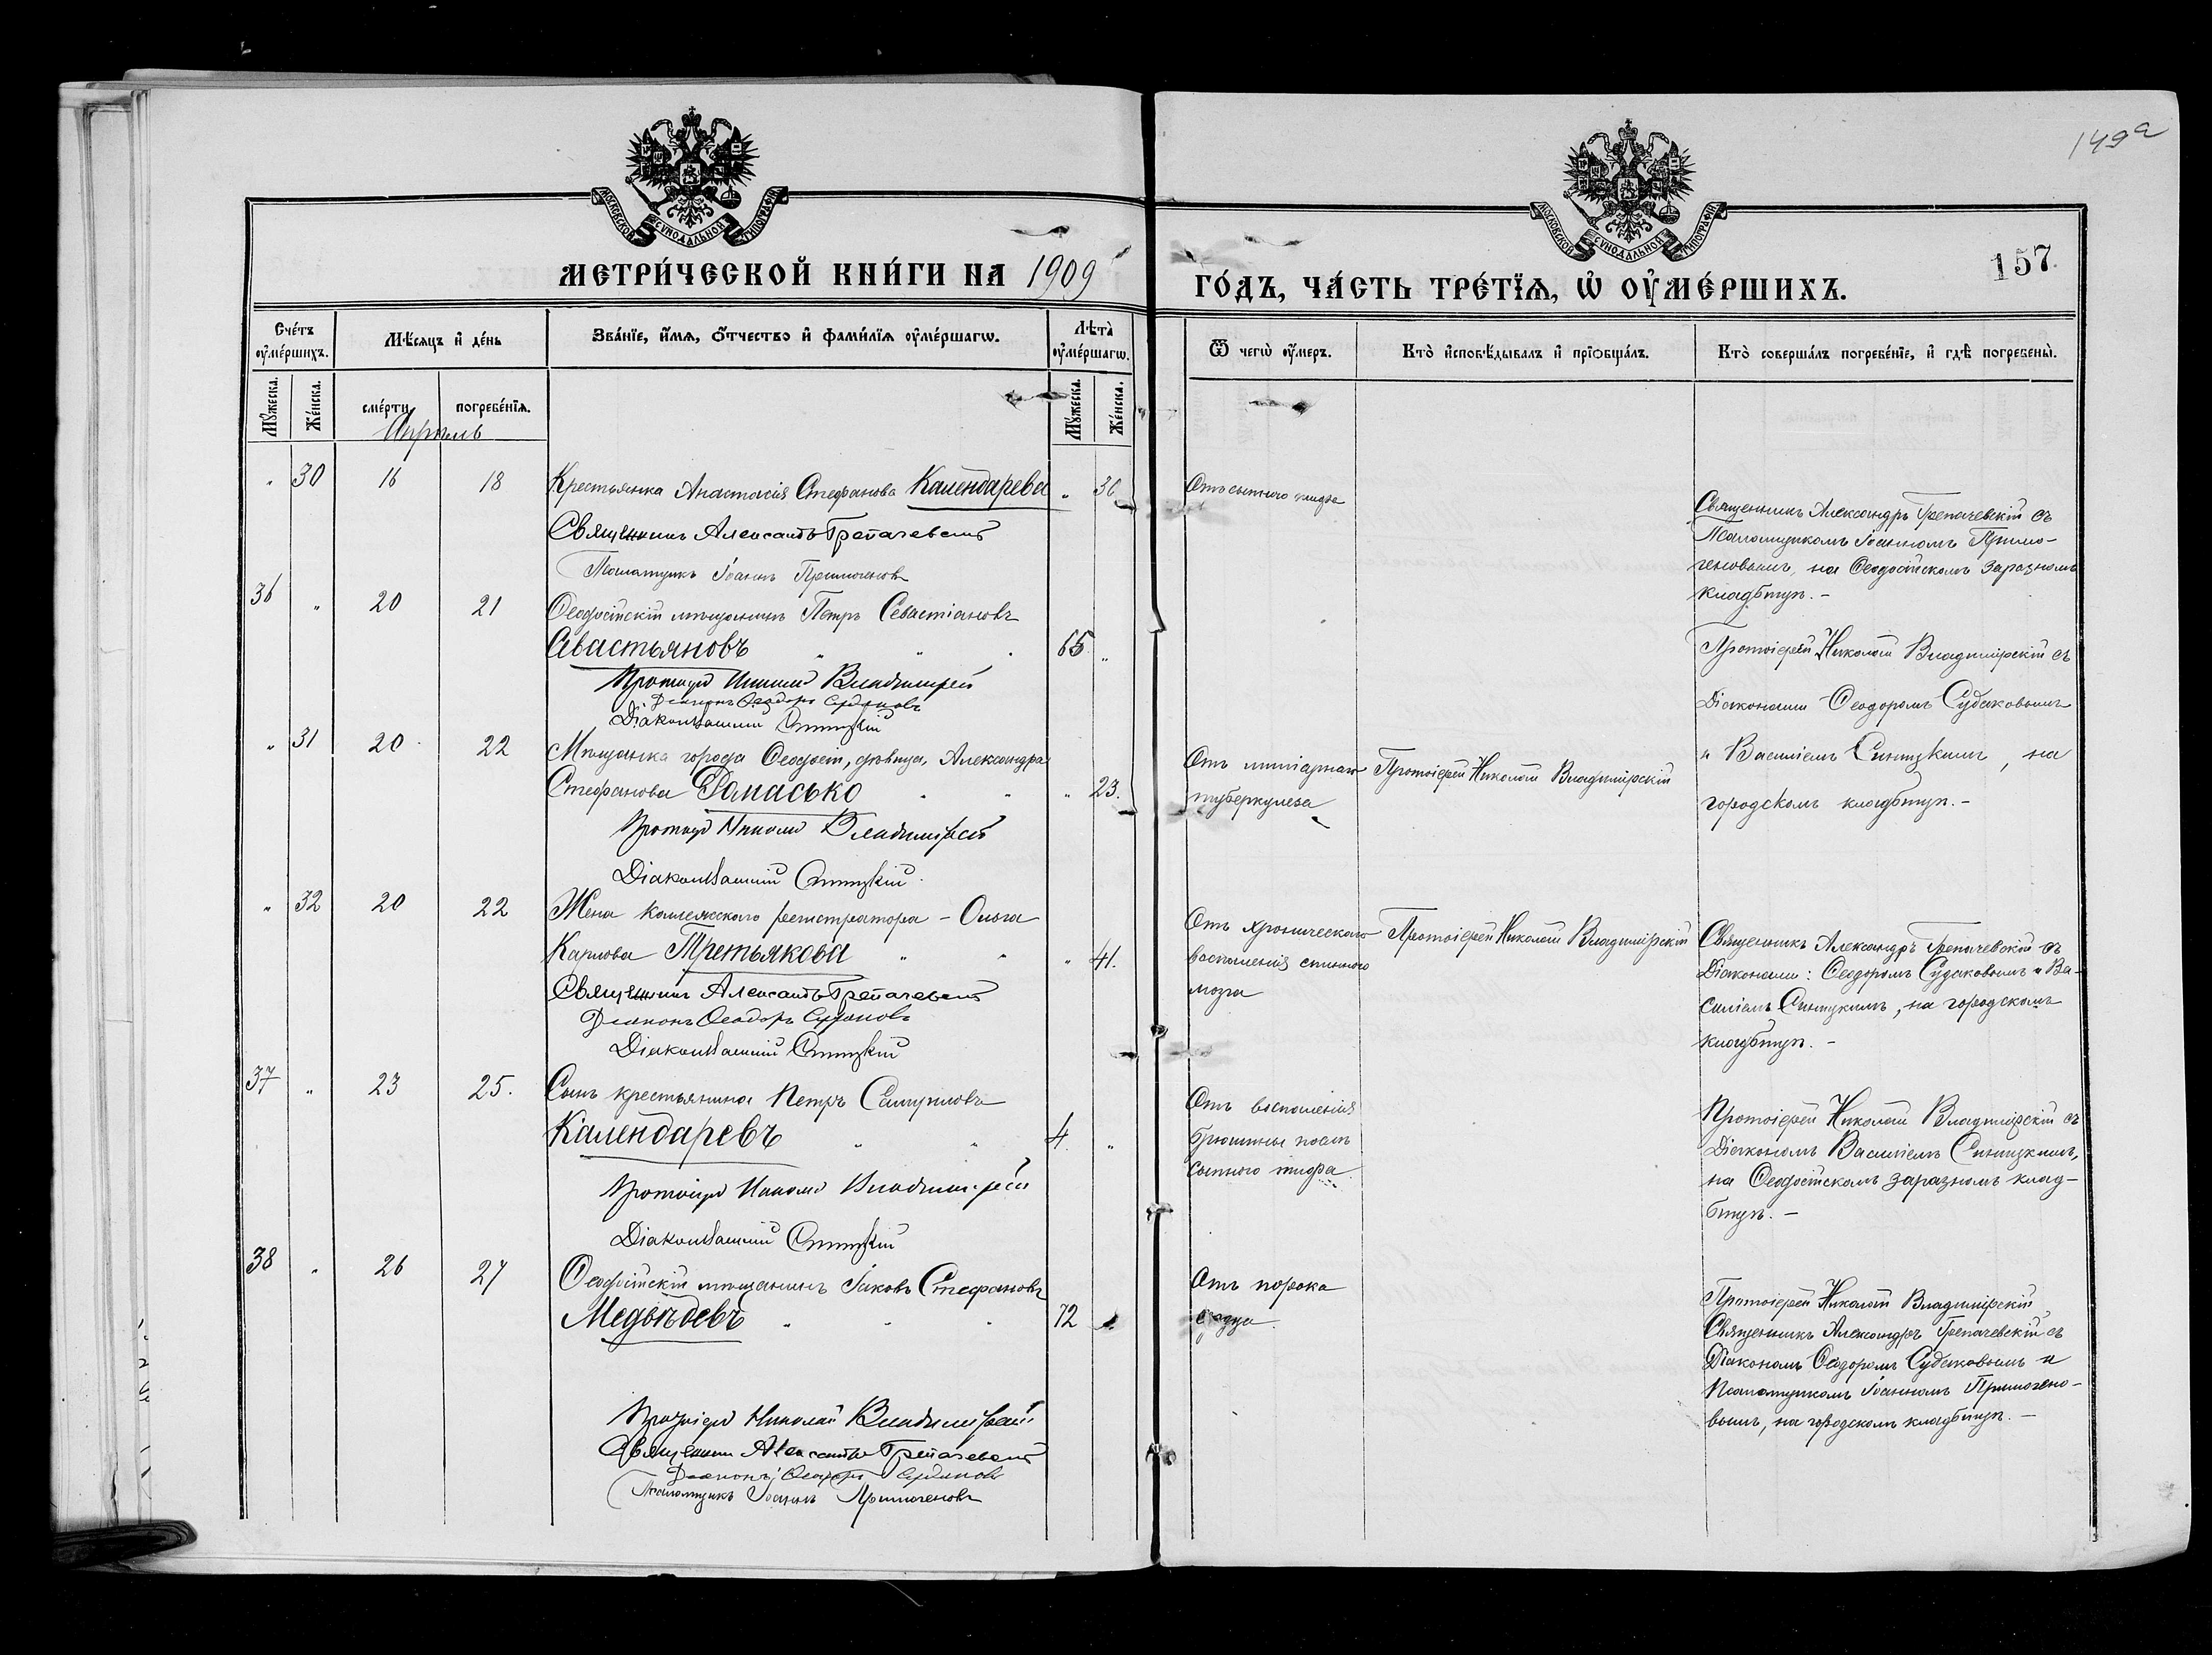 149а
МОСКОВСКОЙ СѴНОДАЛЬНОЙ ТИПОГРАФІИ
МОСКОВСКОЙ СѴНОДАЛЬНОЙ ТИПОГРАФІИ
МЕТРИ́ЧЕСКОЙ КНИ́ГИ НА 1909
ГО́ДЪ, ЧА́СТЬ ТРЕ́ТЇѦ, Ѡ҆ ОУ҆МЕ́РШИХЪ.
157
Сче́тъ оу҆ме́ршихъ.
Мѣ́сѧцъ и҆ де́нь
Зва́нїе, и҆́мѧ, ѻ҆́тчество и҆ фами́лїѧ оу҆ме́ршагѡ.
Лѣ́та оу҆ме́ршагѡ.
Ѿ чегѡ̀ оу҆́меръ.
Кто̀ и҆сповѣ́дывалъ и҆ прїѡбща́лъ.
Кто̀ соверша́лъ погребе́нїе, и҆ гдѣ̀ погребены̀.
Мꙋ́жеска.
Же́нска.
сме́рти
погребе́нїѧ.
Мꙋ́жеска.
Же́нска.
Апрѣль
" 30 16 18 Крестьянка Анастасія Стефанова Календарева " 36
Отъ сыпного тифа
Священникъ Александръ Трепачевскій
Псаломщикъ Іоаннъ Примогеновъ
Священникъ Александръ Трепачевскій съ
Псаломщикомъ Іоанномъ Примо-
геновымъ, на Ѳеодосійскомъ заразномъ
кладбищѣ. -
36 " 20 21 Ѳеодосійскій мѣщанинъ Петръ Севастіановъ
Савастьяновъ " " " 65 "
Протоіерей Николай Владимірскій
Діаконъ Ѳеодоръ Судаковъ
Діаконъ Василій Синицкій
Протоіерей Николай Владимірскій съ
Діаконами Ѳеодоромъ Судаковымъ
и Василіемъ Синицкимъ, на
городскомъ кладбищѣ. -
" 31 20 22 Мѣщанка города Ѳеодосіи, дѣвица, Александра
Стефанова Домасько " " " 23.
Протоіерей Николай Владимірскій
Діаконъ Василій Синицкій
Отъ миліарнаго
туберкулеза
Протоіерей Николай Владимірскій
" 32 20 22 Жена коллежскаго регистратора - Ольга
Карлова Третьякова " " " 41.
Священникъ Александръ Трепачевскій
Діаконъ Ѳеодоръ Судаковъ
Діаконъ Василій Синицкій
Отъ хроническаго
воспаленія спинного
мозга
Протоіерей Николай Владимірскій
Священникъ Александръ Трепачевскій съ
Діаконами: Ѳеодоромъ Судаковымъ и Ва-
силіемъ Синицкимъ, на городскомъ
кладбищѣ. -
37 " 23 25. Сынъ крестьянина Петръ Самуиловъ
Календаревъ " " 4. "
Протоіерей Николай Владимірскій
Діаконъ Василій Синицкій
Отъ воспаленія
брюшины послѣ
сыпного тифа
Протоіерей Николай Владимірскій съ
Діакономъ Василіемъ Синицкимъ,
на Ѳеодосійскомъ заразномъ клад-
бищѣ. -
38 " 26 27 Ѳеодосійскій мѣщанинъ Іаковъ Стефановъ
Медвѣдевъ " " " 72 "
Протоіерей Николай Владимірскій
Священникъ Александръ Трепачевскій
Діаконъ Ѳеодоръ Судаковъ
Псаломщикъ Іоаннъ Примогеновъ
Отъ порока
сердца
Протоіерей Николай Владимірскій
Священникъ Александръ Трепачевскій съ
Діакономъ Ѳеодоромъ Судаковымъ и
Псаломщикомъ Іоанномъ Примогено-
вымъ, на городскомъ кладбищѣ. -